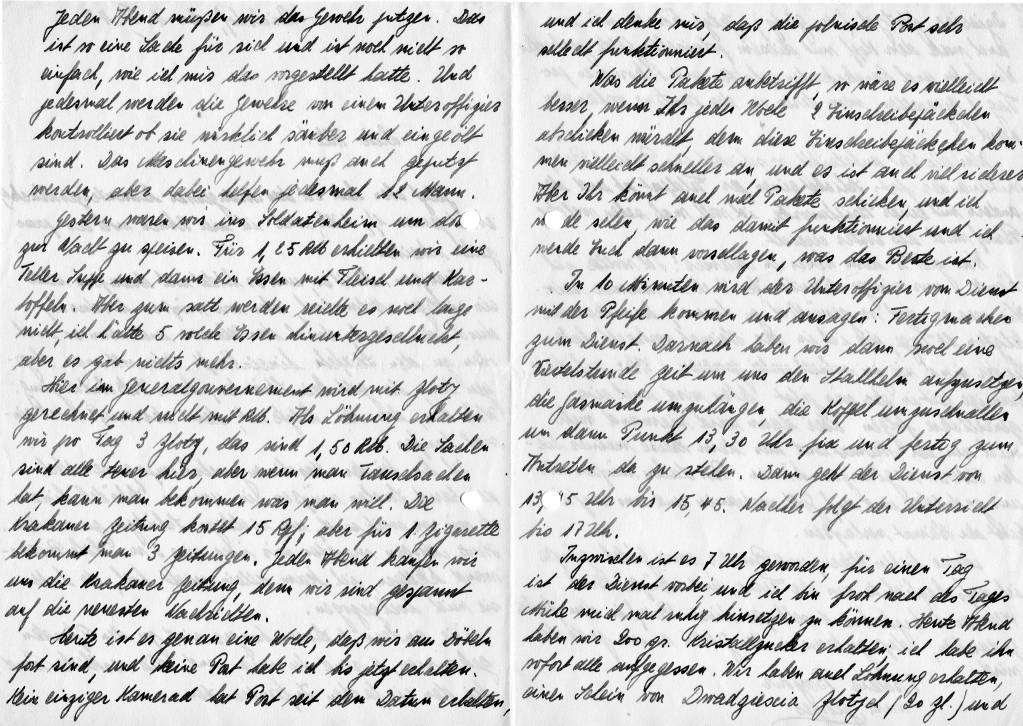 Jeden Abend müßen wir das Gewehr putzen. Das
ist so eine Sache für sich und ist noch nicht so
einfach, wie ich mir das vorgestellt hatte. Und
jedesmal werden die Gewehre von einem Unteroffizier
kontrolliert ob sie wirklich sauber und eingeölt
sind. Das Maschinengewehr muß auch geputzt
werden, aber dabei helfen jedesmal 12 Mann.
Gestern waren wir ins Soldatenheim um dort
zur Nacht zu speisen. Für 1,25 Rb erhielten wir eine
Teller Suppe und dann ein Essen mit Fleisch und Kar-
toffeln. Aber zum satt werden reichte es noch lange
nicht, ich hätte 5 solch Essen hinuntergeschluckt,
aber es gab nichts mehr.
Hier im Generalgouvernement wird mit Zloty
gerechnet und nicht mit Rb. Als Löhnung erhalten
wir pro Tag 3 Zloty, das sind 1,50 Rb. Die Sachen
sind alle teuer hier, aber wenn man Tauschsachen
hat, kann man bekommen was man will. Die
Krakauer Zeitung kostet 15 Rpf, aber für 1 Zigarette
bekommt man 3 Zeitungen. Jeden Abend kaufen wir
uns die Krakauer Zeitung, denn wir sind gespannt
auf die neuesten Nachrichten.
Heute ist es genau eine Woche, daß wir aus Döbeln
fort sind, und keine Post habe ich bis jetzt erhalten.
Kein einziger Kamerad hat Post seit dem Datum erhalten,
und ich denke mir, daß die polnische Post sehr
schlecht funktioniert.
Was die Pakete anbetrifft, so wäre es vielleicht
besser, wenn Ihr jede Woche 2 Einschreibepäckchen
abschicken würdet, denn diese Einschreibepäckchen kom-
men vielleicht schneller an, und es ist auch viel sicherer.
Aber Ihr könnt auch mal Pakete schicken, und ich
werde sehen, wie das damit funktioniert und ich
werde Euch dann vorschlagen, was das Beste ist.
In 10 Minuten wird der Unteroffizier vom Dienst
mit der Pfeife kommen und ansagen: Fertigmachen
zum Dienst. Darnach haben wir dann noch eine
Viertelstunde Zeit um uns den Stahlhelm aufzusetzen,
die Gasmaske umzuhängen, die Koppel umzuschnallen
um dann Punkt 13,30 Uhr fix und fertig zum
Antreten da zu stehen. Dann geht der Dienst von
13,45 Uhr bis 15,45. Nachher folgt der Unterricht
bis 17 Uhr.
Inzwischen ist es 7 Uhr geworden, für einen Tag
ist der Dienst vorbei und ich bin froh nach des Tages
Mühe mich mal ruhig hinsetzen zu können. Heute Abend
haben wir 200 gr. Kristallzucker erhalten, ich habe ihn
sofort alle aufgegessen. Wir haben auch Löhnung erhalten,
einen Schein von Dwadziescia Zlotych (20 Zl.) und